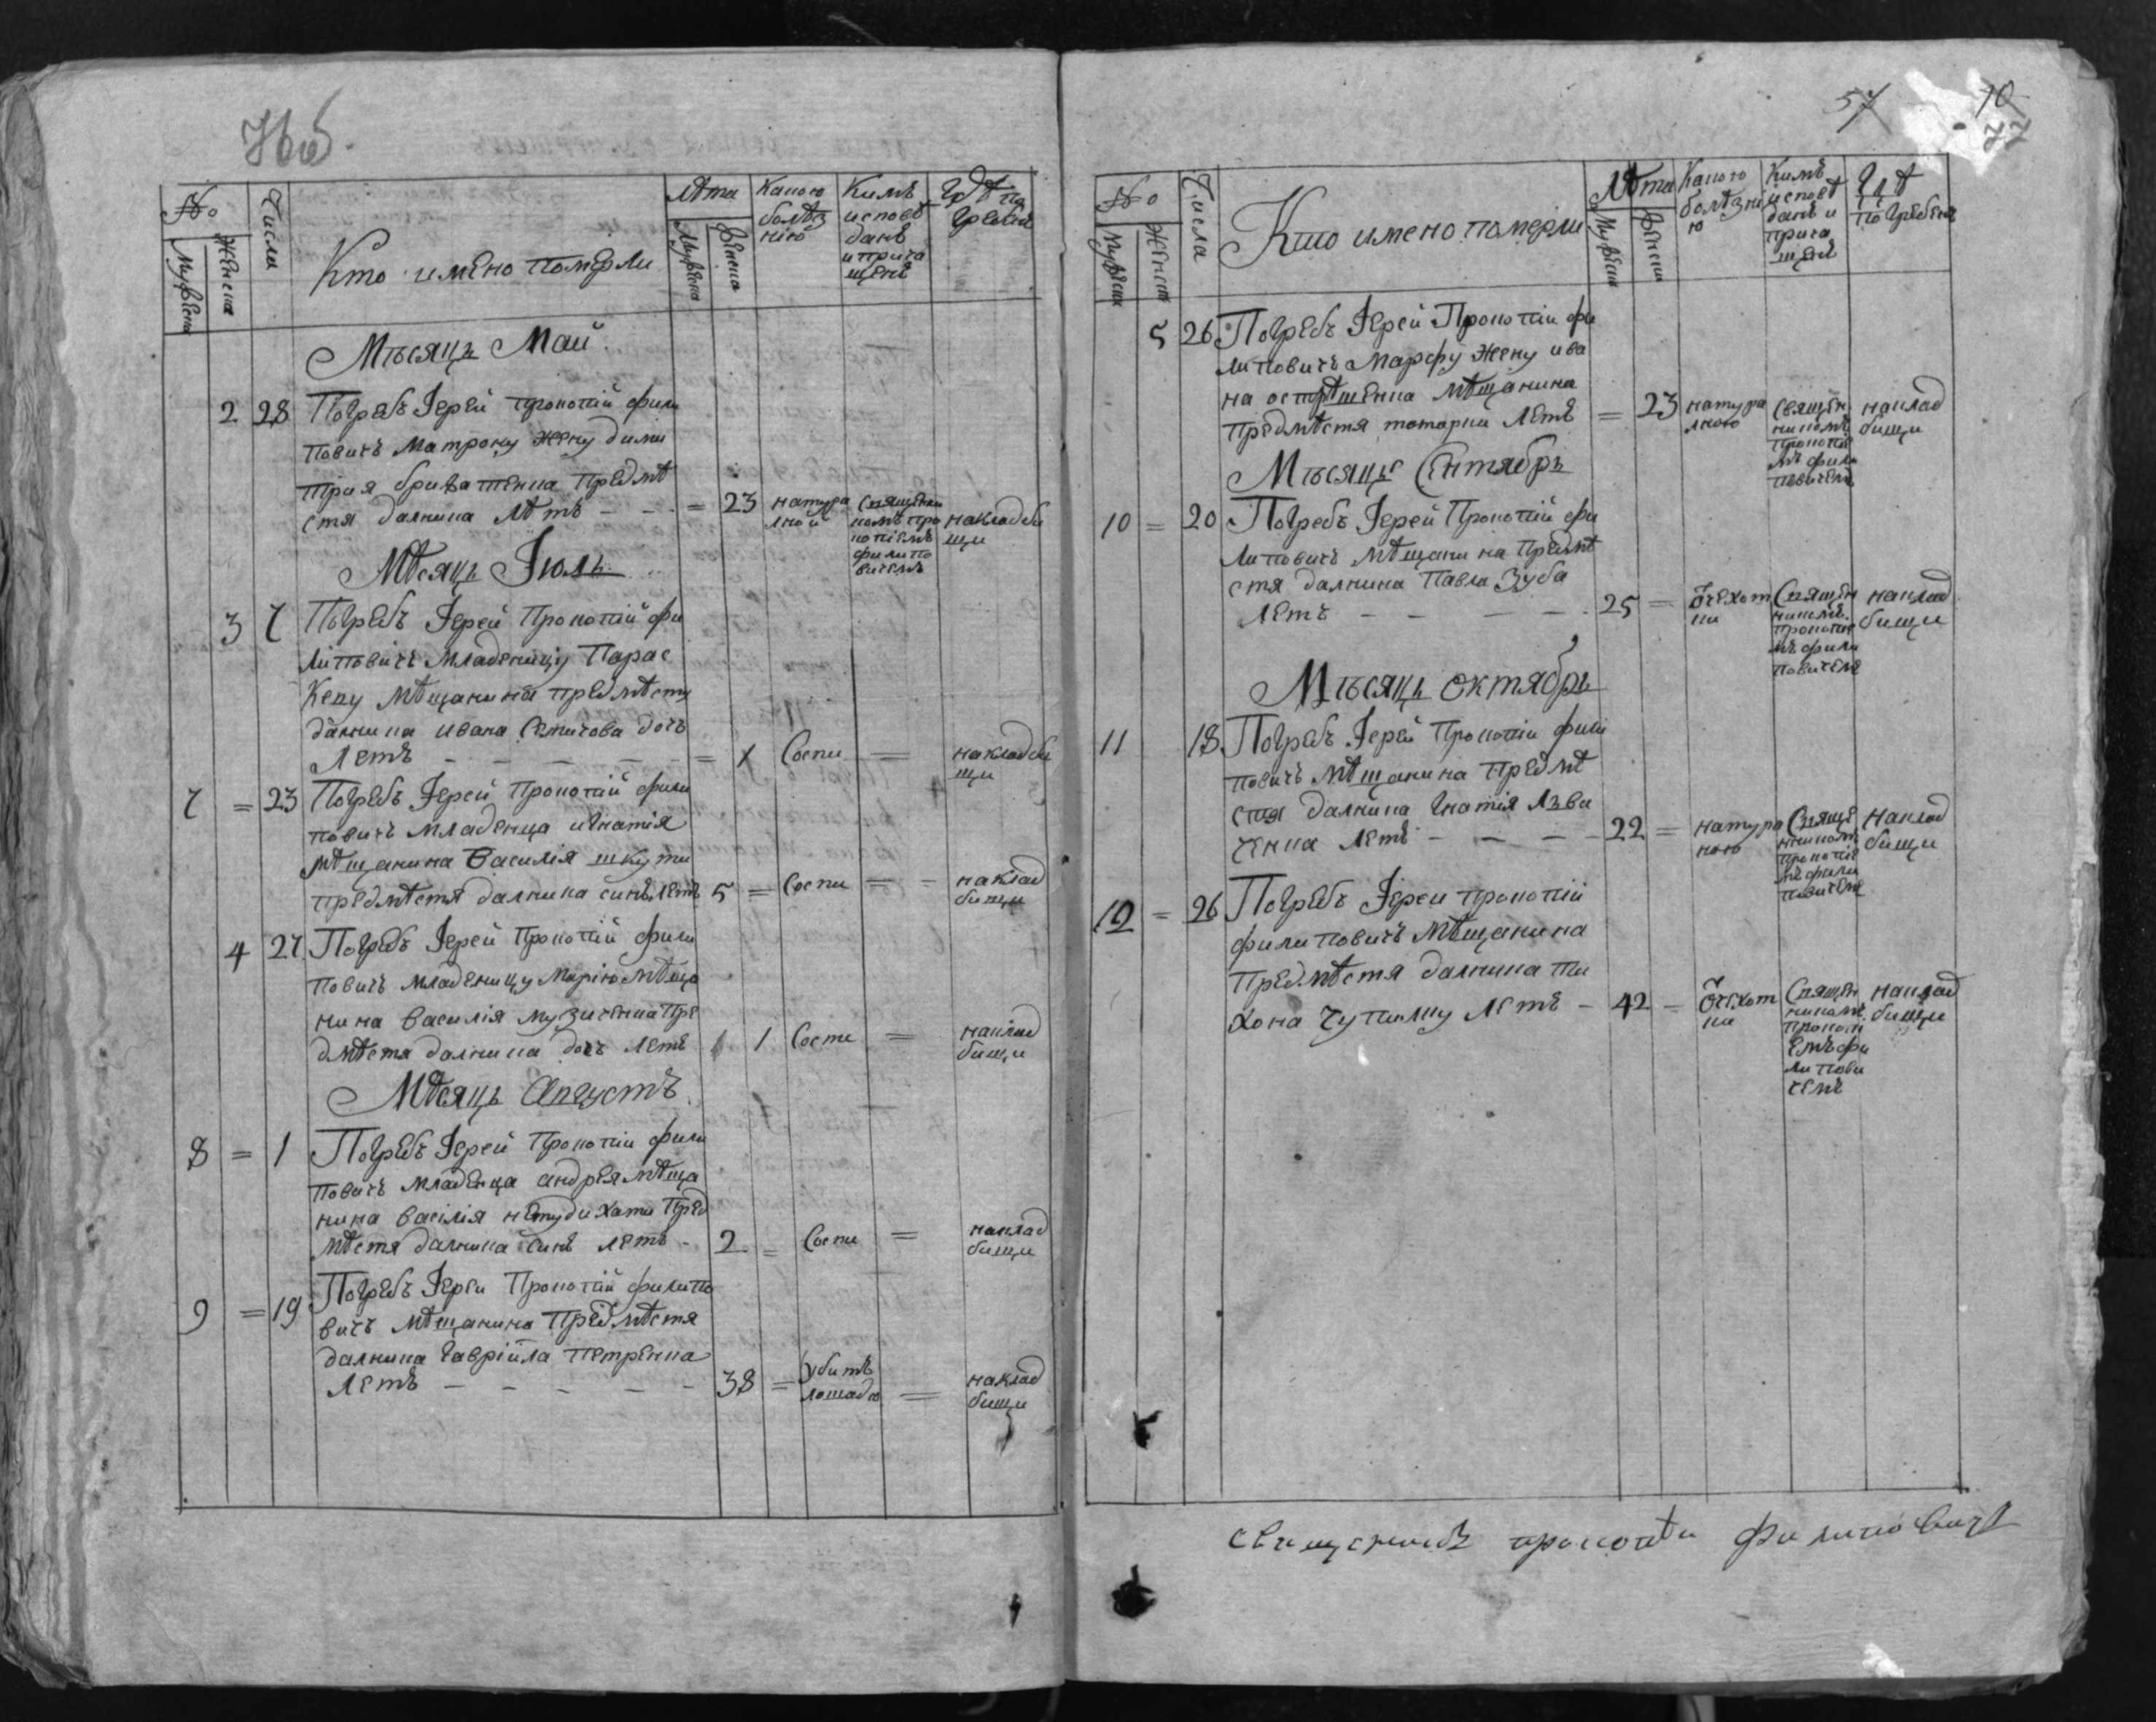 76 об.
№
Мужеска
Женска
Числа
Кто имено померли
Лѣта
Мужеска
Женска
Какою
болѣз
нію
Кимъ
исповѣ
данъ
и прича
щенъ
Гдѣ по
гребен
Мѣсяцъ Май
2 28 Погребъ Іерей Прокопій фили
повичъ Матрону жену дими
трія предмѣ
стя далника Лѣтъ - - - = 23
натура
лной
священни
комъ про
копіемъ
филипо
вичемъ
на кладби
щи
Мѣсяцъ Іюль
3 7 Погребъ Іерей Прокопій фи
липовичъ младеницу Парас
кеву мѣщанина предмѣсти
далника ивана дочь
Летъ - - - - - = 1 Воспи = на кладби
щи
7 = 23 Погребъ Іерей Прокопій фили
повичъ младенца игнатія
мѣщанина Василія шкути
предмѣстя далника синъ летъ 5 = Воспи = = на клад
бищи
4 27 Погребъ Іерей Прокопій фили
повичъ младеницу Марію мѣща
нина василія музиченка пре
дмѣстя далника дочъ летъ 1 Воспи = на клад
бищи
Мѣсяцъ Августъ
8 = 1 Погребъ Іерей Прокопій фили
повичъ младенца андрея мѣща
нина василія нетудихати пред
мѣстя далника синъ летъ - 2 = Воспи = на клад
бищи
9 = 19 Погребъ Іерей Прокопій филипо
вичъ мѣщанина предмѣстя
далника гавріила петренка
Летъ - - - - - 38 = убитъ
лошадю = на клад
бищи
57 70
77
№
Мужеск
Женск
Числа
Кто имено померли
Лѣта
Мужеск
Женска
Какою
болѣзні
ю
Кимъ
исповѣ
данъ и
прича
щенъ
Гдѣ
погребен
5 26 Погребъ Іерей Прокопій фи
липовичъ Марфу жену ива
на мѣщанина
предмѣстя татарки Летъ = 23
натура
лною
священ
никомъ
прокопіе
мъ фили
повичемъ
на клад
бищи
Мѣсяцъ Сентябръ
10 = 20 Погребъ Іерей Прокопій фи
липовичъ мѣщанина предмѣ
стя далника Павла Зуба
Летъ - - - - 25 =
ӧтехот
ки
священ
никомъ
прокопіе
мъ фили
повичемъ
на клад
бищи
Мѣсяцъ октябръ
11 18 Погребъ Іерей Прокопій фили
повичъ мѣщанина предмѣ
стя далника Гнатія
ченка летъ - - - - 22 =
натура
ною
священ
никомъ
прокопіе
мъ фили
повичемъ
на клад
бищи
12 = 26 Погребъ Іерей прокопій
филиповичъ мѣщанина
предмѣстя далника ти
хона летъ - 42 =
ӧтехот
ки
священ
никомъ
прокопі
емъ фи
липови
чемъ
на клад
бищи
священикъ прокопѣи филиповичъ